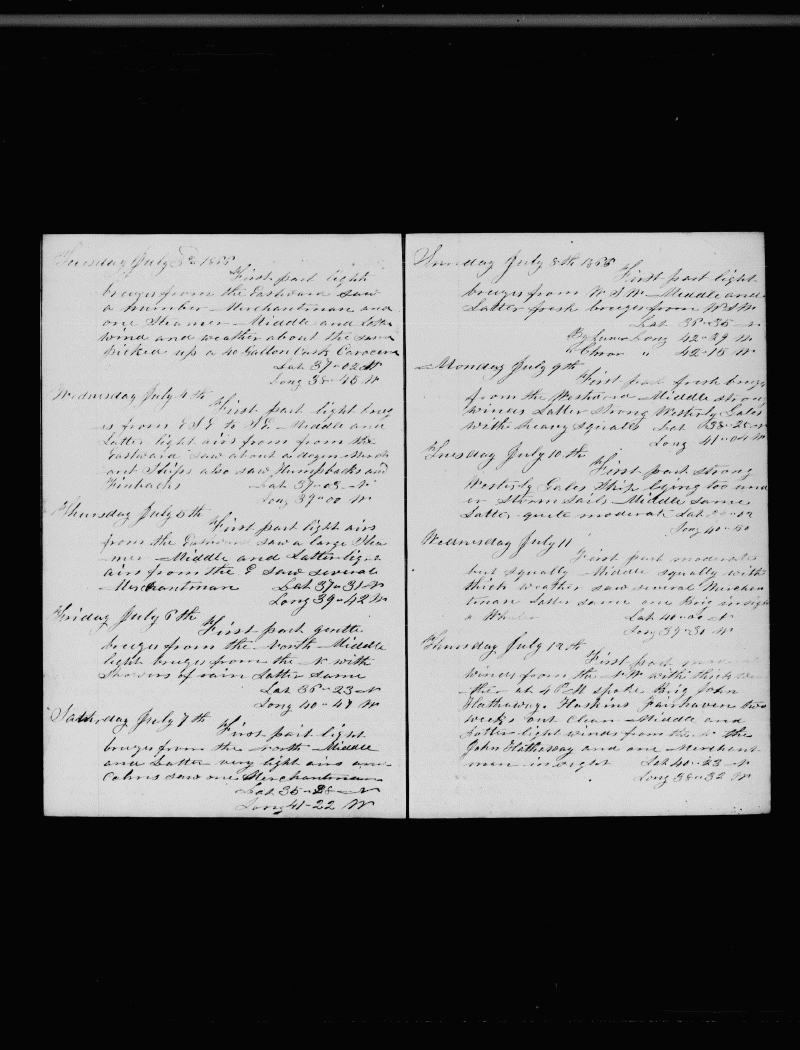 Tuesday July 3d 1866
First part light
breezes from the Eastward saw
a number Merchantman and
one Steamer Middle and Latter
wind and weather about the same
Picked up a 40 Gallon Cask
Lat 37-02 N
Long 38-45 W
Wednesday July 4th
First part light breez
es from E to Middle and
Latter light airs from from the
Eastward saw about a dozen Merch
ant Ships also saw Humpbacks and
Finbacks Lat 37-05 N
Long 39-00 W
Thursday July 5th
First part light airs
from the Eastward saw a large Stea
mer Middle and Latter light
airs from the E saw several
Merchantman Lat 37-31 N
Long 39-42 W
Friday July 6th
First part gentle
breezes from the North Middle
light breezes from the N with
showers of rain Latter same
Lat 36-23 N
Long 40-47 W
Saturday July 7th
First part light
breezes from the north Middle
and Latter very light airs and
calms saw one Merchantman
Lat 35-28 N
Long 41-22 W
Sunday July 8th 1866
First part light
breezes from W S W Middle and
Latter fresh breezes from W S W
Lat 36-35 N
By Lunar Long 42-29 W
" Chron " 42-15 W
Monday July 9th
First part fresh breezes
from the Westward Middle strong
winds Latter strong Westerly Gales
with heavy squalls Lat 38-28 N
Long 41-04 W
Tuesday July 10th
First part strong
Westerly Gales Ship lying too und
er Storm sails Middle same
Latter quite moderate Lat
Long 40-50
Wednesday July 11
First part moderate
but squally Middle squally with
thick weather saw several Merchan
tman Latter same one Brig in sight
a Whaler Lat 40-00 N
Long 39-31 W
Thursday July 12th
First part
winds from the with thick wea
ther at 4 P M spoke Brig John
Hathaway Hoskins Fairhaven two
weeks out Clean Middle and
Latter light winds from the the
John Hathaway and one Merchant
man in sight Lat 40-23 N
Long 38-32 W